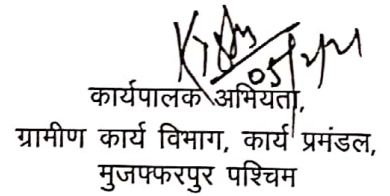 कार्यपालक अभियता,
ग्रामीण कार्य विभाग, कार्य प्रमंडल,
मुजफ्फरपुर पश्चिम